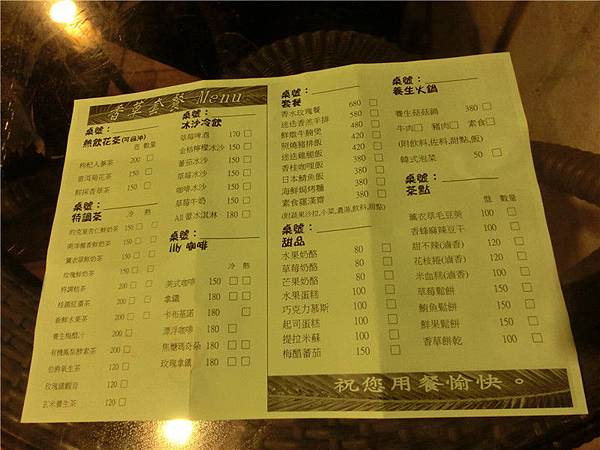 香草套餐 Menu
桌號：
熱飲花茶(可回沖)
壺 數量
枸杞人蔘茶 200
普洱菊花茶 150
鮮採香草茶 150
桌號：
特調茶 冷 熱
約克夏杏仁鮮奶茶 150
南洋椰香鮮奶茶 150
薰衣草鮮奶茶 150
玫瑰鮮奶茶 150
特調桔茶 150
桂圓紅棗茶 150
新鮮水果茶 200
養生梅醋汁 200
有機鳳梨酵素茶 200
伯爵氧生茶 120
玫瑰鐵觀音 120
玄米養生茶 120
桌號：
冰沙冷飲
草莓啤酒 170
金桔檸檬冰沙 150
蕃茄冰沙 150
草莓冰沙 150
咖啡冰沙 150
草莓牛奶 150
All 蕾冰淇淋 180
桌號：
咖啡
冷 熱
美式咖啡 150
拿鐵 180
卡布基諾 180
漂浮咖啡 180
焦糖瑪奇朵 180
玫瑰拿鐵 180
桌號：
套餐
香水玫瑰餐 680
迷迭香羔羊排 480
鮮燉牛腩煲 420
照燒豬排飯 380
迷迭雞腿飯 380
香桂咖哩飯 380
日本鯖魚飯 380
海鮮焗烤麵 380
素食羅漢齋 280
(附蔬果沙拉,小菜,濃湯,飲料,甜點)
桌號：
甜品
水果奶酪 80
草莓奶酪 80
芒果奶酪 80
水果蛋糕 100
巧克力慕斯 100
起司蛋糕 100
提拉米蘇 100
梅醋蕃茄 150
桌號：
養生火鍋
養生菇菇鍋 380
牛肉□ 豬肉□ 素食□
(附飲料,佐料,甜點,飯)
韓式泡菜 50
桌號：
茶點
盤 數量
薰衣草毛豆莢 100
香蜂麻辣豆干 100
甜不辣(滷香) 120
花枝捲(滷香) 120
米血糕(滷香) 120
草莓鬆餅 100
鮪魚鬆餅 100
鮮果鬆餅 100
香草餅乾 100
祝您用餐愉快。